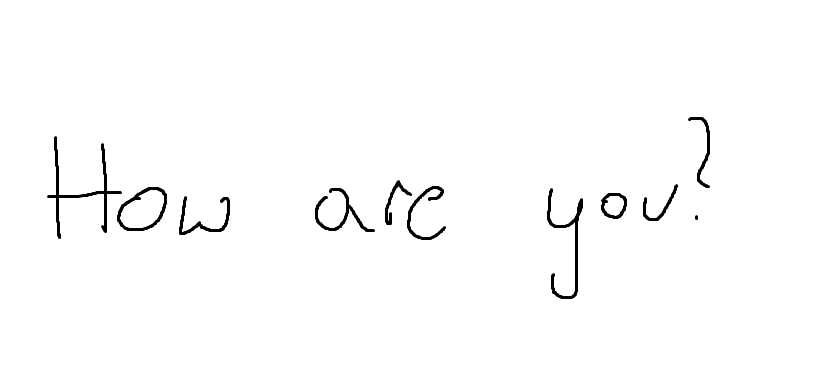 How are you?